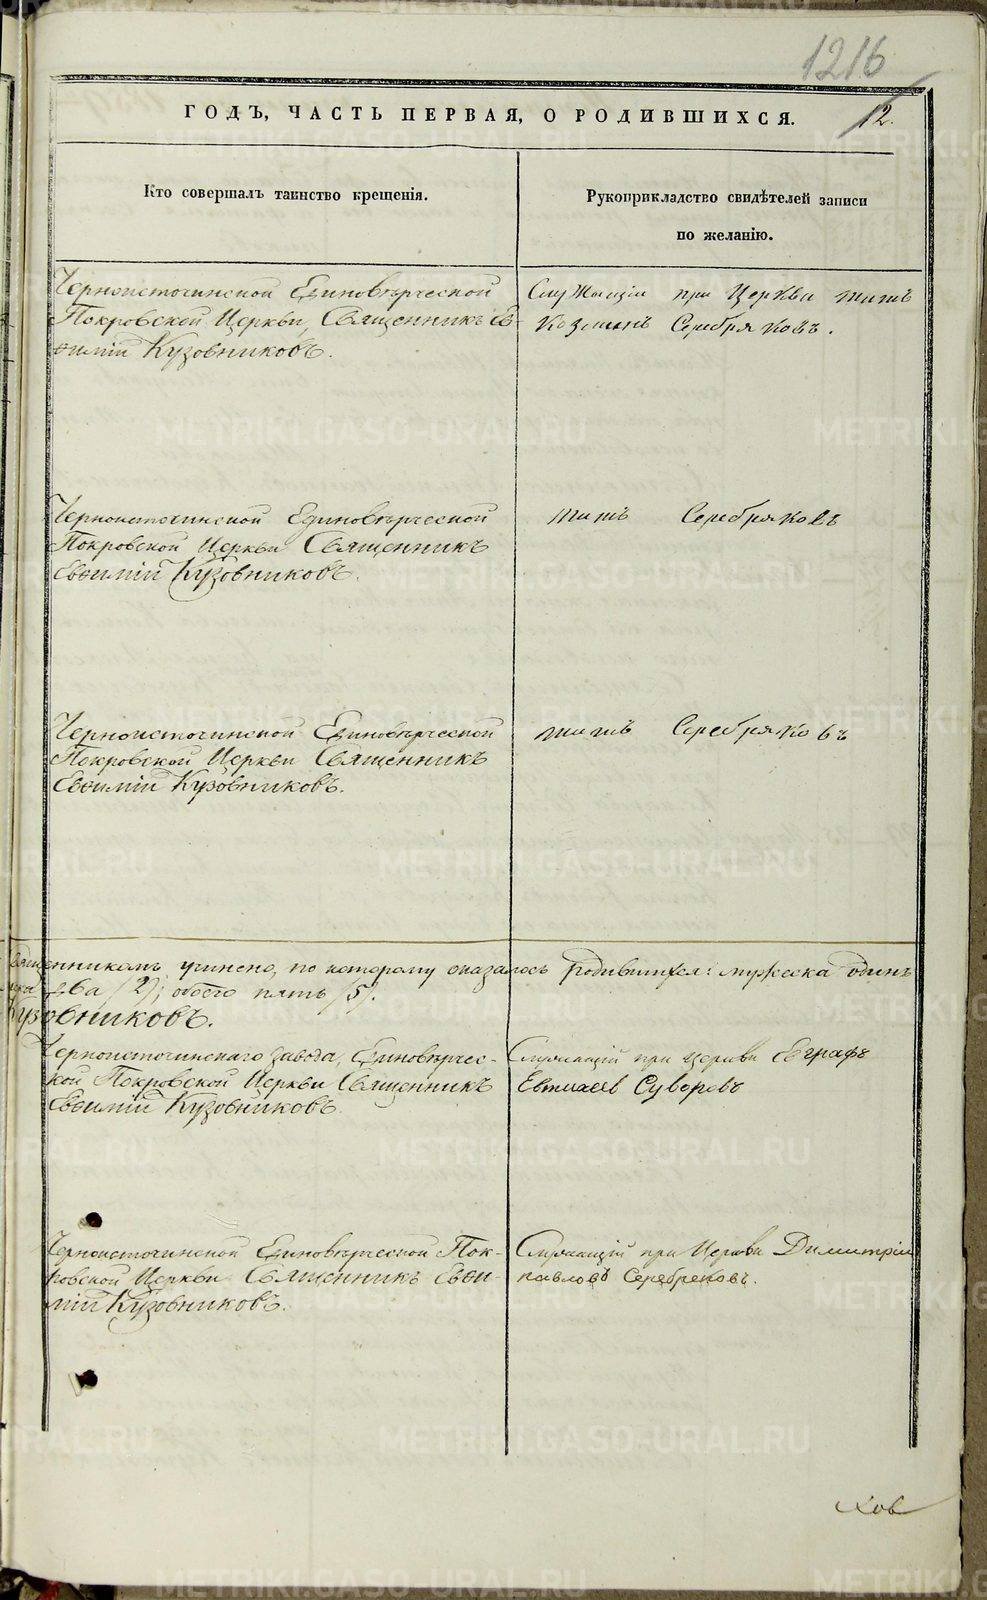 1216
ГОДЪ, ЧАСТЬ ПЕРВАЯ, О РОДИВШИХСЯ.
12.
Кто совершалъ таинство крещенія.
Рукоприкладство свидѣтелей записи
по желанію.
Черноисточинской Единовѣрческой
Покровской Церкви, Священникъ Ев-
ѳимій Кузовниковъ.
Служащій при Церкви Титъ
Козьминъ Серебряковъ.
Черноисточинской Единовѣрческой
Покровской Церкви Священникъ
Евѳимій Кузовниковъ.
Титъ Серебряковъ
Черноисточинской Единовѣрческой
Покровской Церкви Священникъ
Евѳимій Кузовниковъ.
Титъ Серебряковъ
Священникомъ учинено, по которому оказалось родившихся: мужеска одинъ
два /2/; обоего пять /5/.
Кузовниковъ.
Черноисточинскаго завода, Единовѣрчес-
кой Покровской Церкви Священникъ
Евѳимій Кузовниковъ
Служащій при Церкви Евграфъ
Суворовъ
Черноисточинской Единовѣрческой Пок-
ровской Церкви Священникъ Евѳи-
мій Кузовниковъ.
Служащій при Церкви Димитрій
павловъ Серебрековъ.
METRIKI.GASO-URAL.RU